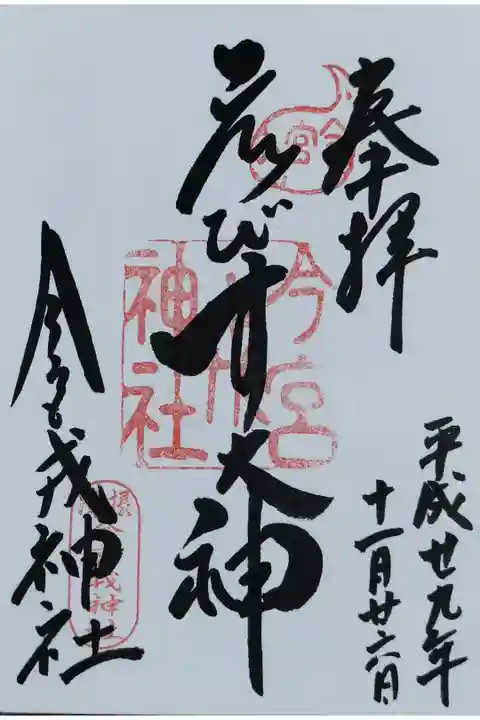 奉拝
平成廿九年
十一月廿六日
えびす大神
今宮戎神社
今宮戎神社